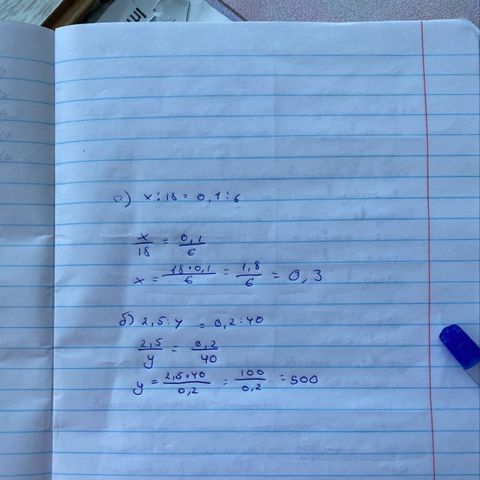 а) x : 18 = 0,1 : 6
x/18 = 0,1/6
x = 18·0,1/6 = 1,8/6 = 0,3
б) 2,5 : y = 0,2 : 40
2,5/y = 0,2/40
y = 2,5·40/0,2 = 100/0,2 = 500